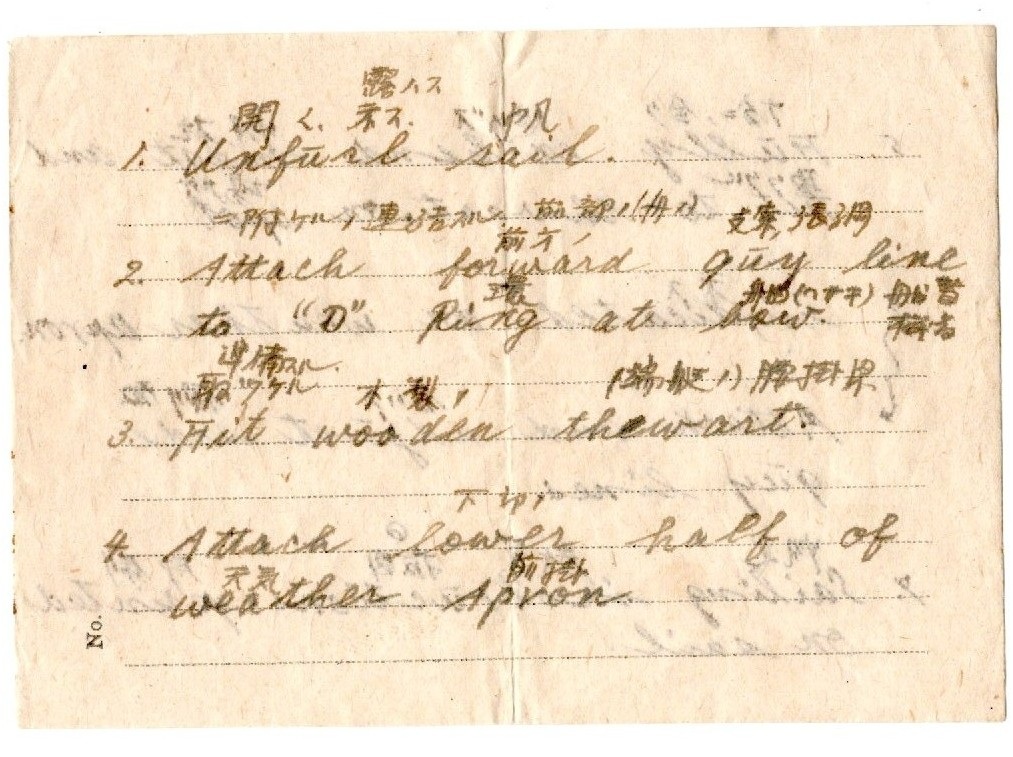 露ハス
開く、示ス. 帆
1. Unfurl sail.
ニ附ケル, 連結スル、 前部ノ(舟ノ) 支索, 張綱
前方ノ
2. Attach forward guy line
環
to "D" Ring at bow.
準備スル.
取ツケル 木製ノ (端艇ノ) 腰掛
3. Fit wooden thewart.
下部ノ
4. Attach lower half of
天気 前掛
weather apron
No.